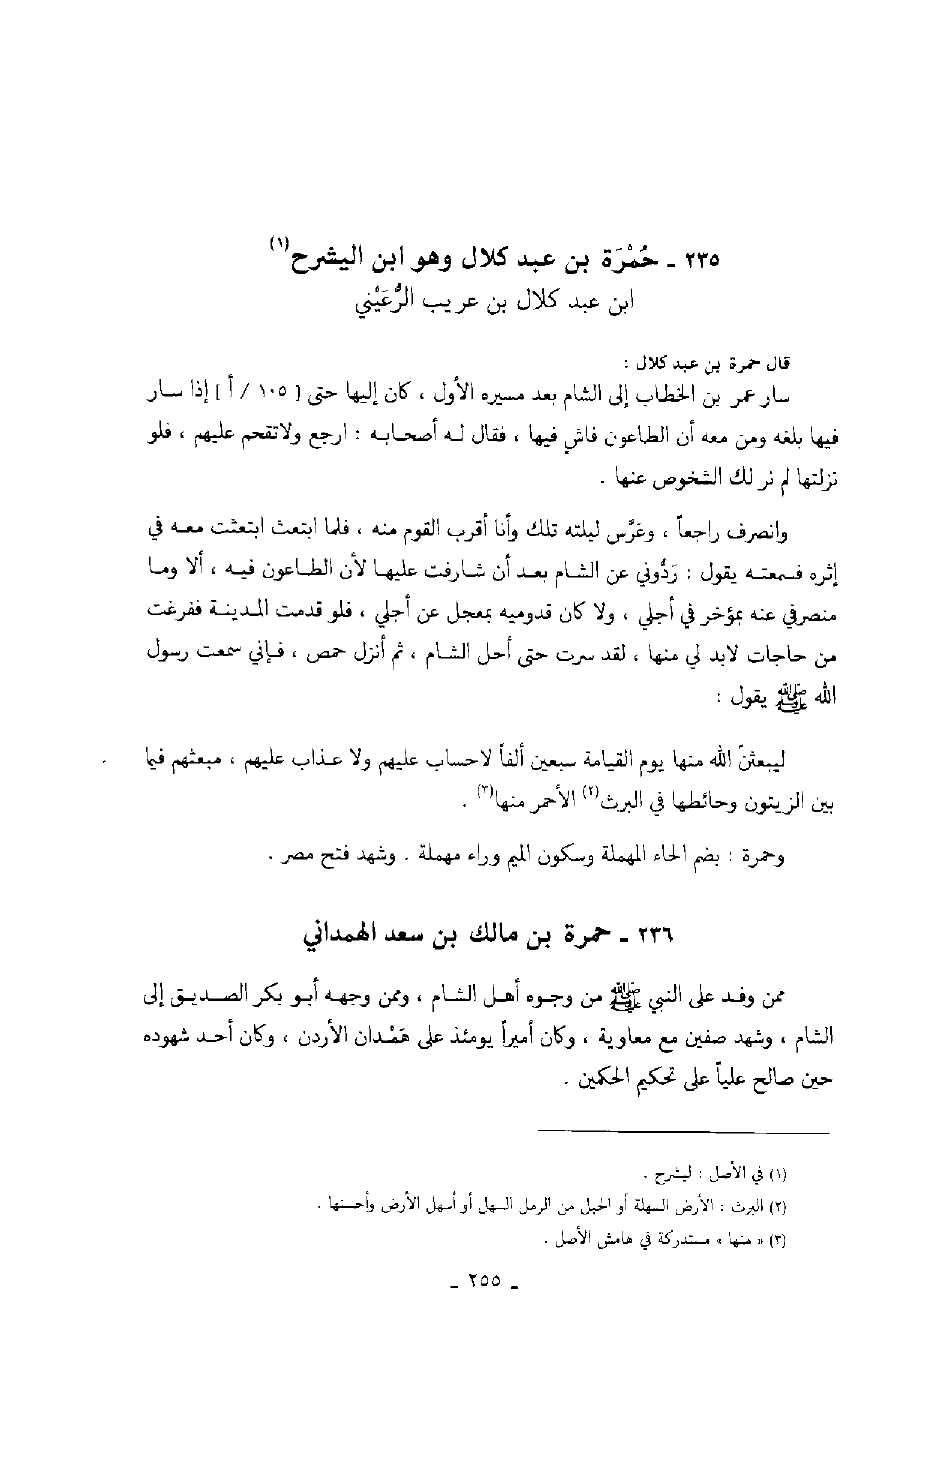 ٢٣٥ ـ حُمْرَة بن عبد كلال وهو ابن اليشرح(١)
ابن عبد كلال بن عريب الرُّعَيْني
قال حمرة بن عبد كلال :
سار عمر بن الخطاب إلى الشام بعد مسيره الأول ، كان إليها حتى [ ١٠٥ / أ ] إذا سار
فيها بلغه ومن معه أن الطاعون فاشٍ فيها ، فقال له أصحابه : ارجع ولاتقحم عليهم ، فلو
نزلتها لم نر لك الشخوص عنها .
وانصرف راجعاً ، وعرَّس ليلته تلك وأنا أقرب القوم منه ، فلما ابتعث ابتعثت معه في
إثره فسمعته يقول : رَدُّوني عن الشام بعد أن شارفت عليها لأن الطاعون فيه ، ألا وما
منصرفي عنه بمؤخر في أجلي ، ولا كان قدوميه بمعجل عن أجلي ، فلو قدمت المدينة ففرغت
من حاجات لابد لي منها ، لقد سرت حتى أحل الشام ، ثم أنزل حمص ، فإني سمعت رسول
الله ﷺ يقول :
ليبعثنّ الله منها يوم القيامة سبعين ألفاً لاحساب عليهم ولا عذاب عليهم ، مبعثهم فيما
بين الزيتون وحائطها في البرث(٢) الأحمر منها(٣) .
وحمرة : بضم الحاء المهملة وسكون الميم وراء مهملة . وشهد فتح مصر .
٢٣٦ ـ حمرة بن مالك بن سعد الهمداني
ممن وفد على النبي ﷺ من وجوه أهل الشام ، وممن وجهه أبو بكر الصديق إلى
الشام ، وشهد صفين مع معاوية ، وكان أميراً يومئذ على هَمْدان الأردن ، وكان أحد شهوده
حين صالح علياً على تحكيم الحكمين .
(١) في الأصل : ليشرح .
(٢) البرث : الأرض السهلة أو الجبل من الرمل السهل أو أسهل الأرض وأحسنها .
(٣) « منها » مستدركة في هامش الأصل .
ـ ٢٥٥ ـ